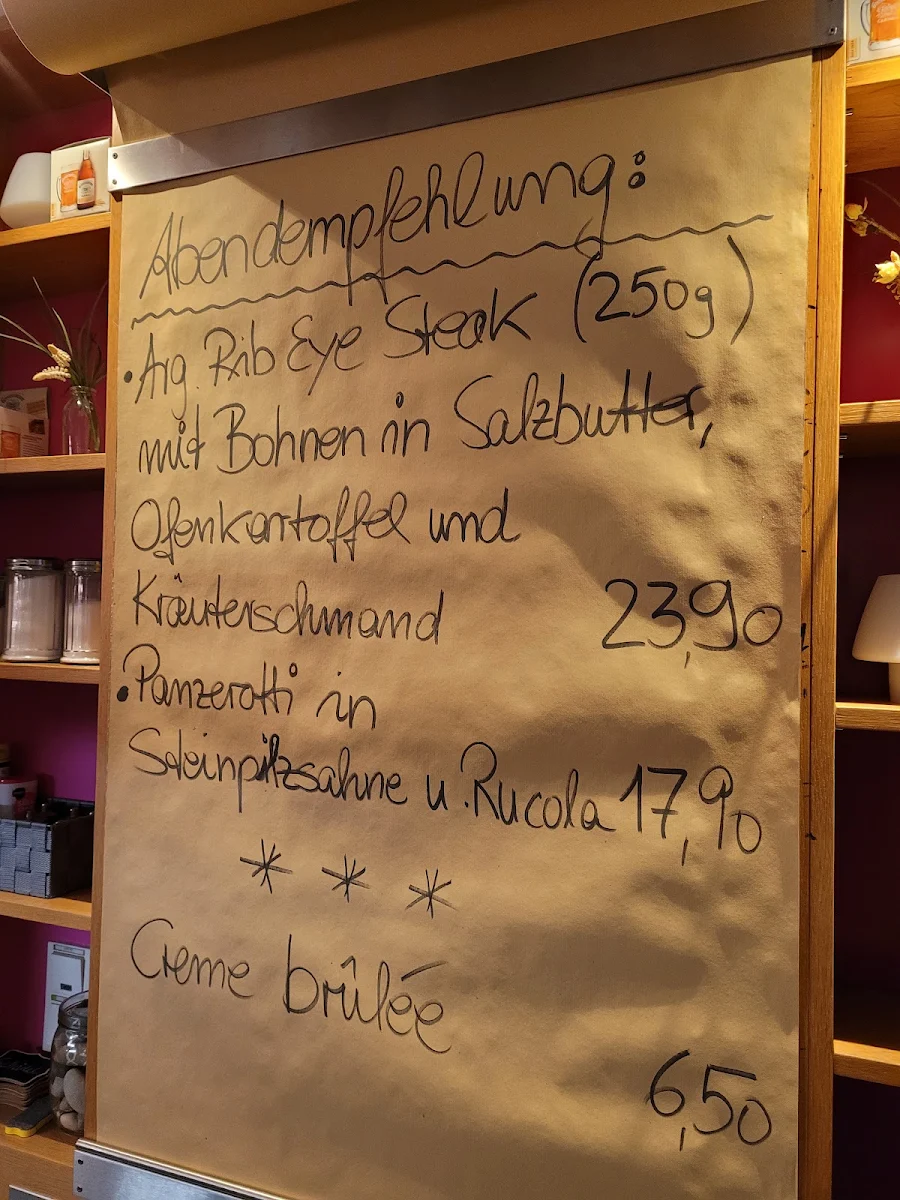 Abendempfehlung:
• Arg. Rib Eye Steak (250g)
mit Bohnen in Salzbutter,
Ofenkartoffel und
Kräuterschmand 23,90
• Panzerotti in
Steinpilzsahne u. Rucola 17,90
* * *
Creme brûlée
6,50